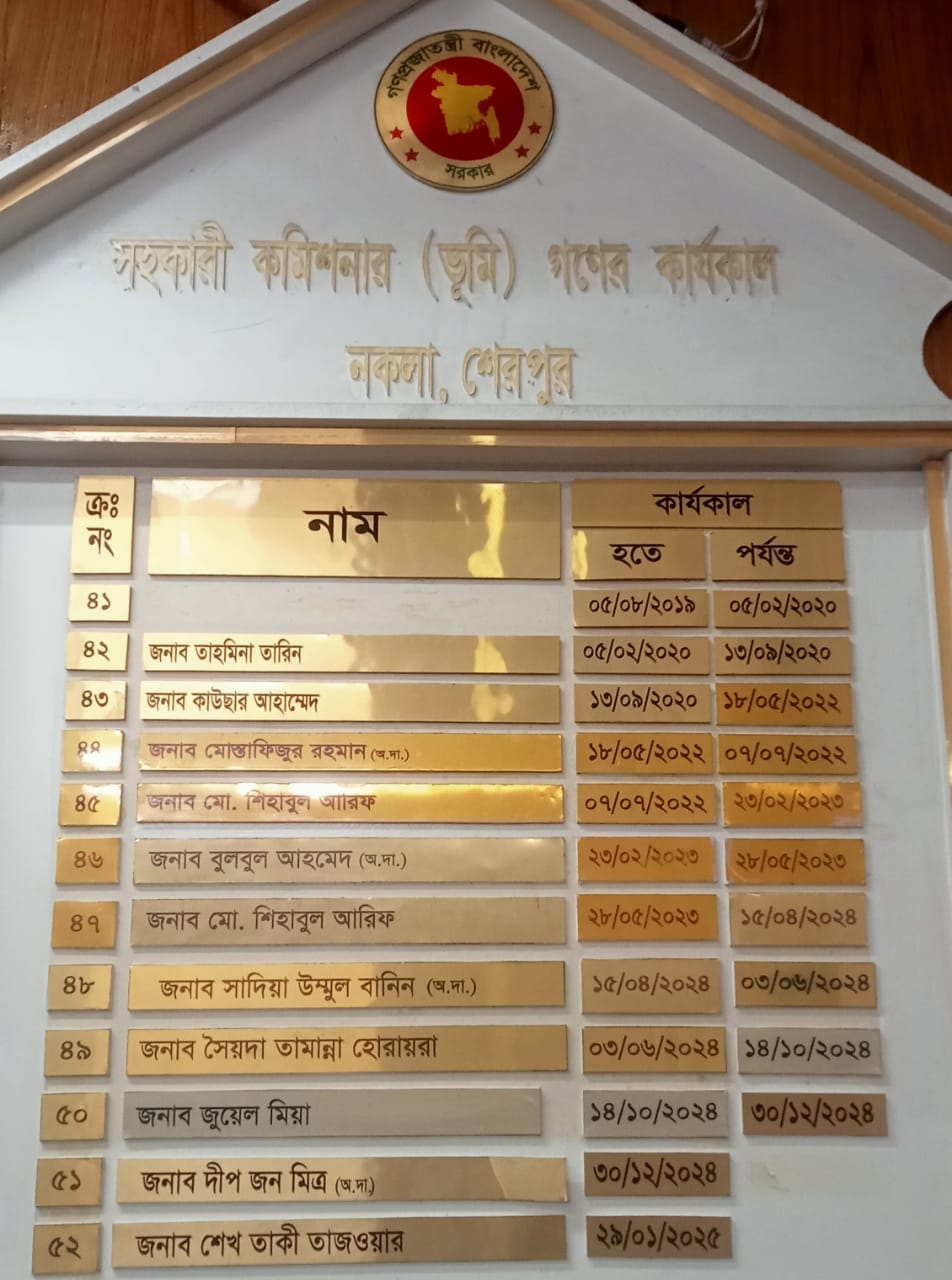 গণপ্রজাতন্ত্রী বাংলাদেশ
সরকার
সহকারী কমিশনার (ভূমি) গণের কার্যকাল
নকলা, শেরপুর
ক্রঃ নং নাম কার্যকাল
হতে পর্যন্ত
৪১ ০৫/০৮/২০১৯ ০৫/০২/২০২০
৪২ জনাব তাহমিনা তারিন ০৫/০২/২০২০ ১৩/০৯/২০২০
৪৩ জনাব কাউছার আহাম্মেদ ১৩/০৯/২০২০ ১৮/০৫/২০২২
৪৪ জনাব মোস্তাফিজুর রহমান (অ.দা.) ১৮/০৫/২০২২ ০৭/০৭/২০২২
৪৫ জনাব মো. শিহাবুল আরিফ ০৭/০৭/২০২২ ২৩/০২/২০২৩
৪৬ জনাব বুলবুল আহমেদ (অ.দা.) ২৩/০২/২০২৩ ২৮/০৫/২০২৩
৪৭ জনাব মো. শিহাবুল আরিফ ২৮/০৫/২০২৩ ১৫/০৪/২০২৪
৪৮ জনাব সাদিয়া উম্মুল বানিন (অ.দা.) ১৫/০৪/২০২৪ ০৩/০৬/২০২৪
৪৯ জনাব সৈয়দা তামান্না হোরায়রা ০৩/০৬/২০২৪ ১৪/১০/২০২৪
৫০ জনাব জুয়েল মিয়া ১৪/১০/২০২৪ ৩০/১২/২০২৪
৫১ জনাব দীপ জন মিত্র (অ.দা.) ৩০/১২/২০২৪
৫২ জনাব শেখ তাকী তাজওয়ার ২৯/০১/২০২৫